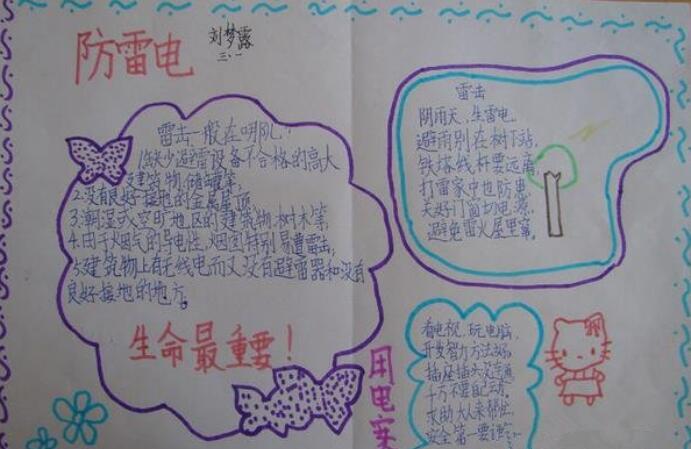 防雷电
刘梦露
三、一
雷击一般在哪儿?
1.缺少避雷设备不合格的高大
建筑物、储罐等
2.没有良好接地的金属屋顶
3.潮湿或空旷地区的建筑物、树木等
4.由于烟气的导电性,烟囱特别易遭雷击;
5.建筑物上有无线电而又没有避雷器和没有
良好接地的地方。
生命最重要!
雷击
阴雨天,生雷电,
避雨别在树下站,
铁塔线杆要远离,
打雷家中也防患,
关好门窗切电源,
避免雷火屋里窜。
用电安
看电视,玩电脑,
开发智力方法好。
插座插头没电
千万不要自己动。
求助大人来帮忙
安全第一要